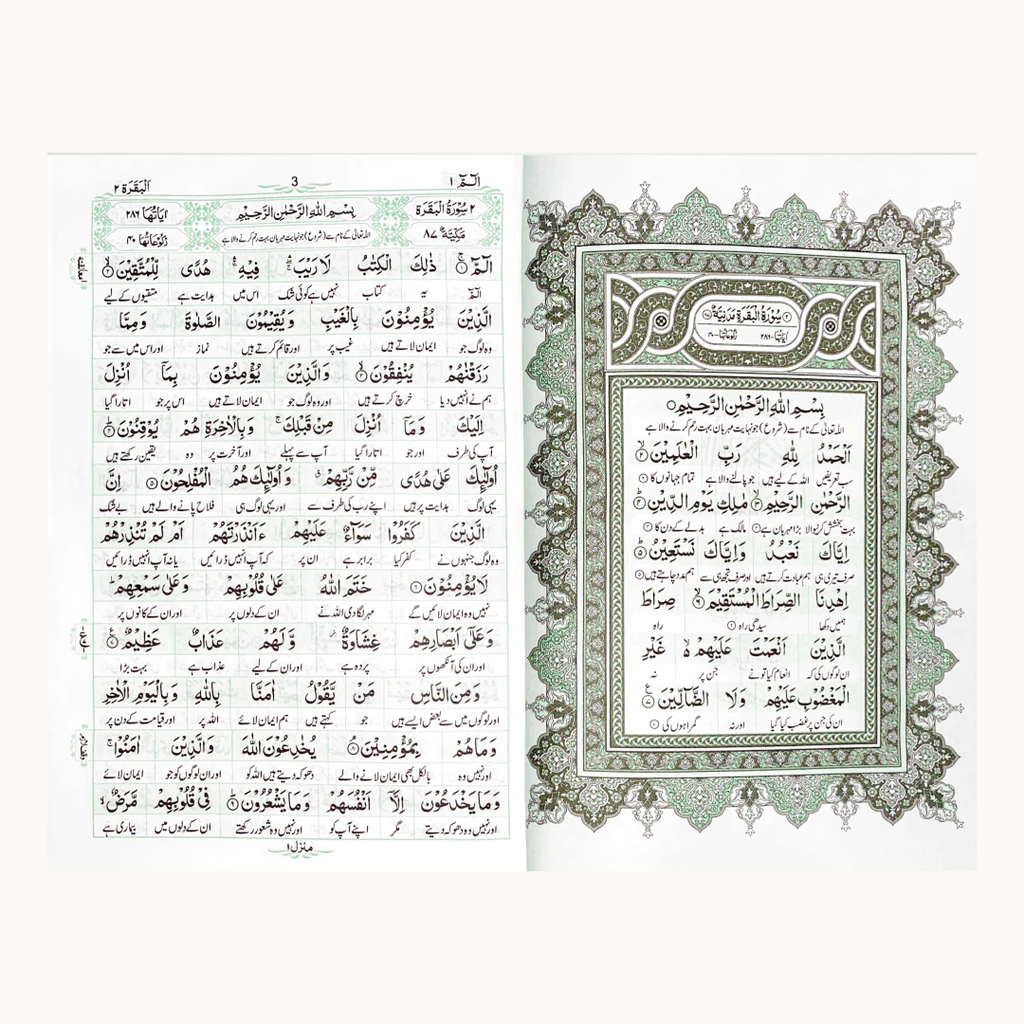 سُوْرَةُ الْبَقَرَةِ مَدَنِيَّةٌ
بِسْمِ اللّٰهِ الرَّحْمٰنِ الرَّحِيْمِ
اللہ تعالیٰ کے نام سے (شروع) جو نہایت مہربان بہت رحم کرنے والا ہے
اَلْحَمْدُ لِلّٰهِ رَبِّ الْعٰلَمِيْنَ ۙ
سب تعریفیں اللہ کے لیے ہیں جو پالنے والا ہے تمام جہانوں کا ۱
الرَّحْمٰنِ الرَّحِيْمِ ۙ مٰلِكِ يَوْمِ الدِّيْنِ ۙ
بہت بخشش کرنیوالا بڑا مہربان ہے مالک ہے بدلے کے دن کا
اِيَّاكَ نَعْبُدُ وَاِيَّاكَ نَسْتَعِيْنُ ۵
صرف تیری ہی ہم عبادت کرتے ہیں اور صرف تجھ ہی سے ہم مدد چاہتے ہیں ۵
اِهْدِنَا الصِّرَاطَ الْمُسْتَقِيْمَ ۙ صِرَاطَ
ہمیں دکھا سیدھی راہ راہ
الَّذِيْنَ اَنْعَمْتَ عَلَيْهِمْ ۙ۬ غَيْرِ
ان لوگوں کی کہ انعام کیا تونے جن پر نہ
الْمَغْضُوْبِ عَلَيْهِمْ وَلَا الضَّآلِّيْنَ ۧ
ان کی جن پر غضب کیا گیا اور نہ گمراہوں کی
الٓـمّٓ ١ 3 اَلْبَقَرَة ٢
٢ سُوْرَةُ الْبَقَرَةِ بِسْمِ اللّٰهِ الرَّحْمٰنِ الرَّحِيْمِ اٰيَاتُهَا ٢٨٦
مَكِّيَّةٌ ٨٧ اللہ تعالیٰ کے نام سے (شروع) جو نہایت مہربان بہت رحم کرنے والا ہے رُكُوْعَاتُهَا ٤٠
الٓمّٓ ۚ ذٰلِكَ الْكِتٰبُ لَا رَيْبَ ۛۖ فِيْهِ ۛۚ هُدًى لِّلْمُتَّقِيْنَ ۙ
الٓمّٓ یہ کتاب نہیں ہے کوئی شک اس میں ہدایت ہے متقیوں کے لیے
الَّذِيْنَ يُؤْمِنُوْنَ بِالْغَيْبِ وَيُقِيْمُوْنَ الصَّلٰوةَ وَمِمَّا
وہ لوگ جو ایمان لاتے ہیں غیب پر اور قائم کرتے ہیں نماز اور اس میں سے جو
رَزَقْنٰهُمْ يُنْفِقُوْنَ ۙ وَالَّذِيْنَ يُؤْمِنُوْنَ بِمَآ اُنْزِلَ
ہم نے انہیں دیا خرچ کرتے ہیں اور وہ لوگ جو ایمان لاتے ہیں اس پر جو اتارا گیا
اِلَيْكَ وَمَآ اُنْزِلَ مِنْ قَبْلِكَ ۚ وَبِالْاٰخِرَةِ هُمْ يُوْقِنُوْنَ ۭ
آپ کی طرف اور جو اتارا گیا آپ سے پہلے اور آخرت پر وہ یقین رکھتے ہیں
اُولٰٓئِكَ عَلٰى هُدًى مِّنْ رَّبِّهِمْ ۤ وَاُولٰٓئِكَ هُمُ الْمُفْلِحُوْنَ ۵ اِنَّ
یہی لوگ ہدایت پر ہیں اپنے رب کی طرف سے اور یہی لوگ ہی فلاح پانے والے ہیں بے شک
الَّذِيْنَ كَفَرُوْا سَوَآءٌ عَلَيْهِمْ ءَاَنْذَرْتَهُمْ اَمْ لَمْ تُنْذِرْهُمْ
وہ لوگ جنہوں نے کفر کیا برابر ہے ان پر کہ آپ انہیں ڈرائیں یا نہ آپ انہیں ڈرائیں
لَا يُؤْمِنُوْنَ ۶ خَتَمَ اللّٰهُ عَلٰى قُلُوْبِهِمْ وَعَلٰى سَمْعِهِمْ ؕ
نہیں وہ ایمان لائیں گے مہر لگادی اللہ نے ان کے دلوں پر اور ان کے کانوں پر
وَعَلٰٓى اَبْصَارِهِمْ غِشَاوَةٌ ۡ وَّلَهُمْ عَذَابٌ عَظِيْمٌ ۧ
اور ان کی آنکھوں پر پردہ ہے اور ان کے لیے عذاب ہے بہت بڑا
وَمِنَ النَّاسِ مَنْ يَّقُوْلُ اٰمَنَّا بِاللّٰهِ وَبِالْيَوْمِ الْاٰخِرِ
اور لوگوں میں سے بعض ایسے ہیں جو کہتے ہیں ہم ایمان لائے اللہ پر اور قیامت کے دن پر
وَمَا هُمْ بِمُؤْمِنِيْنَ ۘ يُخٰدِعُوْنَ اللّٰهَ وَالَّذِيْنَ اٰمَنُوْا ۚ
اور نہیں وہ بالکل بھی ایمان لانے والے دھوکہ دیتے ہیں اللہ کو اور ان لوگوں کو جو ایمان لائے
وَمَا يَخْدَعُوْنَ اِلَّآ اَنْفُسَهُمْ وَمَا يَشْعُرُوْنَ ؕ فِيْ قُلُوْبِهِمْ مَّرَضٌ ۙ
اور نہیں وہ دھوکہ دیتے مگر اپنے آپ کو اور نہیں وہ شعور رکھتے ان کے دلوں میں بیماری ہے
منزل ١